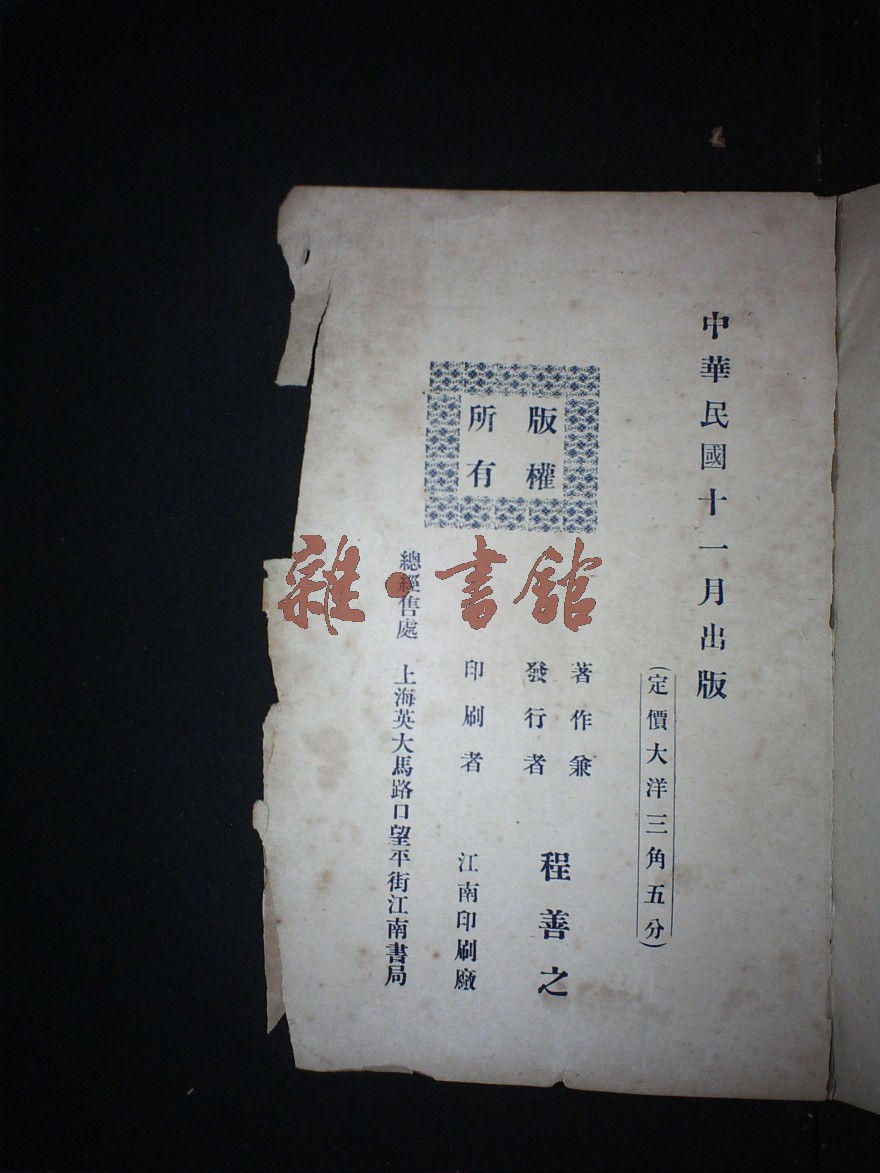 中華民國十一月出版
(定價大洋三角五分)
版權
所有
著作兼
發行者
程善之
印刷者 江南印刷廠
總經售處 上海英大馬路口望平街江南書局
雜·書館